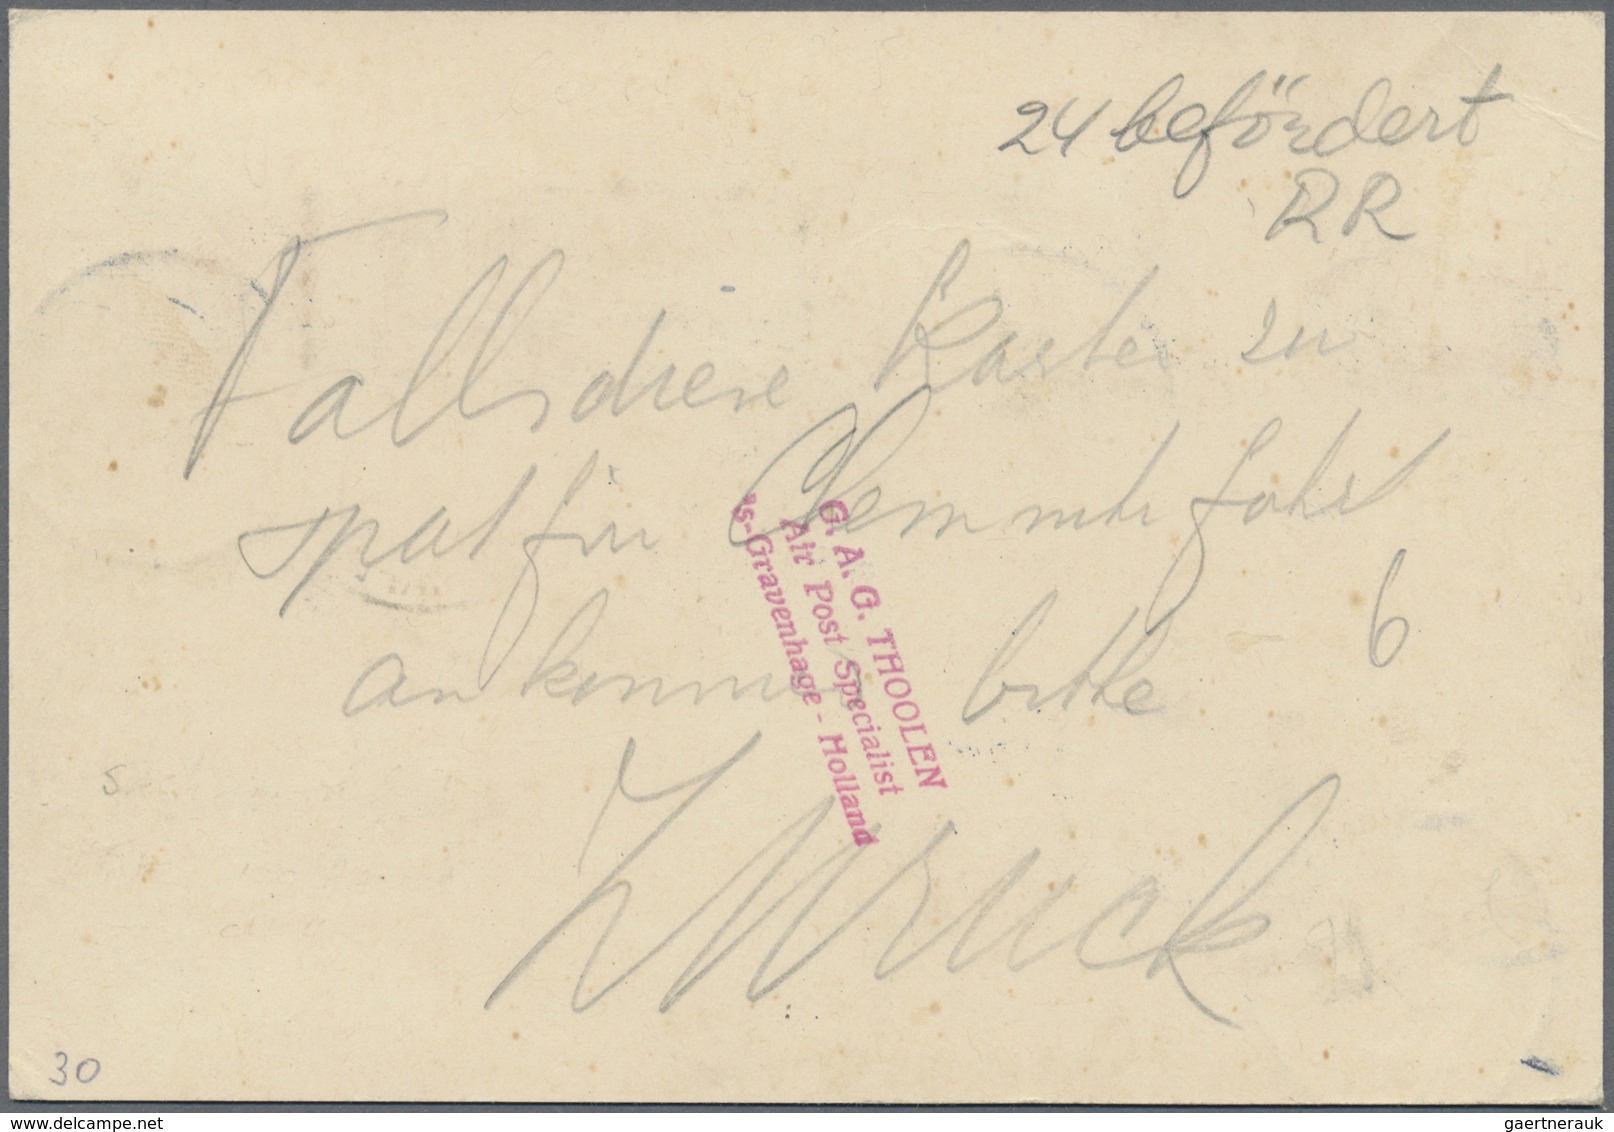 24 befördert
RR
Falls diese Karte zu
spat für Chemnitzfahrt
ankommt bitte
6
zuruck
G. A. G. THOOLEN
Air Post Specialist
's-Gravenhage - Holland
5
30
gaertnerauk